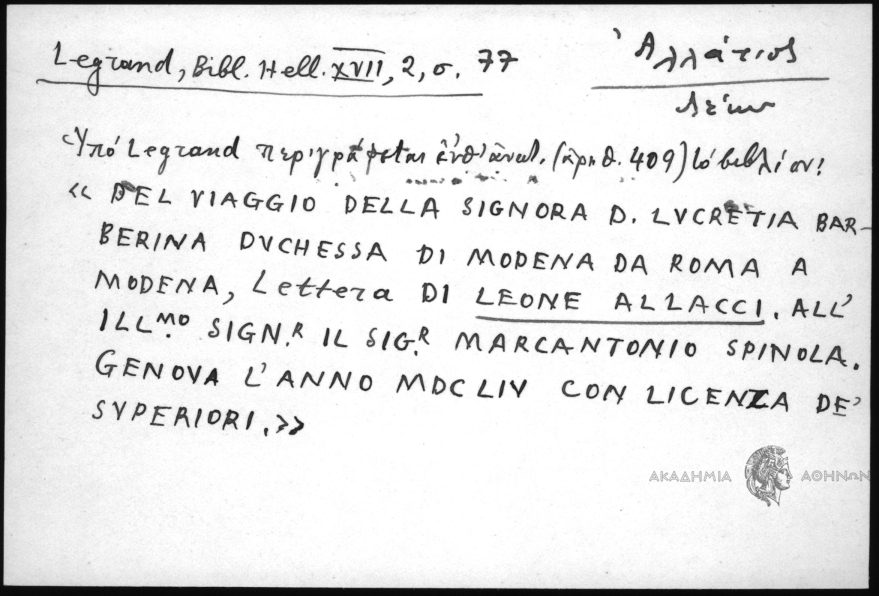 Legrand, Bibl. Hell. XVII, 2, σ. 77
Ἀλλάτιος
Λέων
Ὑπό Legrand περιγράφεται ἐνθ' ἀνωτ. (ἀριθ. 409) τό βιβλίον:
« DEL VIAGGIO DELLA SIGNORA D. LVCRETIA BAR-
BERINA DVCHESSA DI MODENA DA ROMA A
MODENA, Lettera DI LEONE ALLACCI. ALL'
ILL.MO SIGN.R IL SIG.R MARCANTONIO SPINOLA.
GENOVA L'ANNO MDCLIV CON LICENZA DE'
SVPERIORI.»
ΑΚΑΔΗΜΙΑ ΑΘΗΝΩΝ